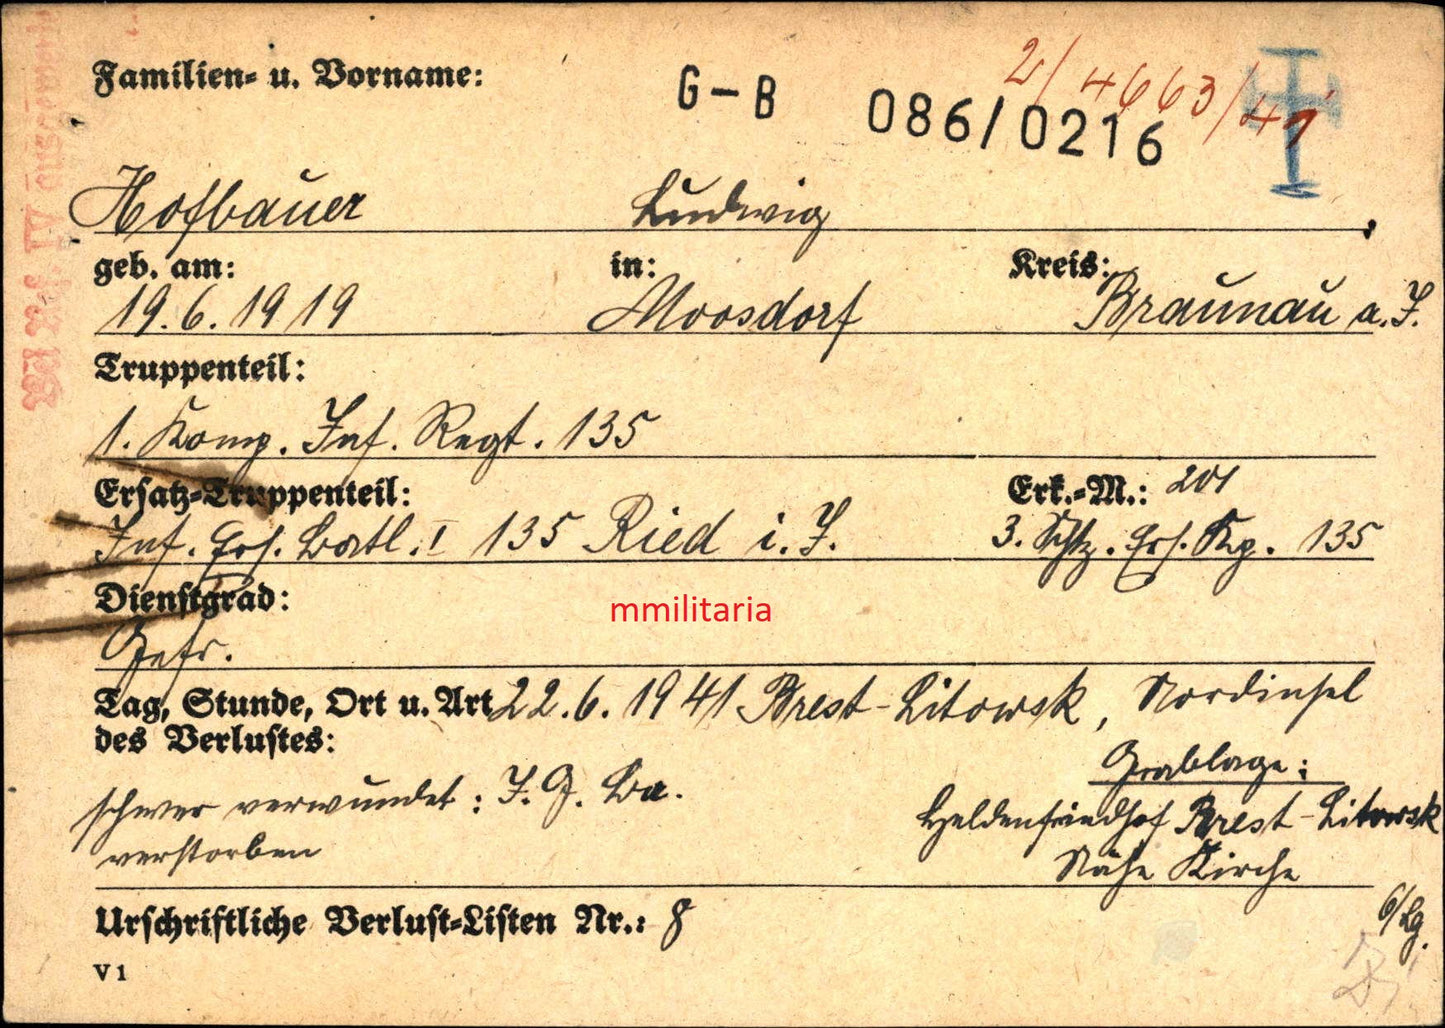 Familien- u. Vorname:
G-B 086/0216
2/4663/41
Hofbauer Ludwig
geb. am: in: Kreis:
19.6.1919 Moosdorf Braunau a. I.
Truppenteil:
1. Komp. Inf. Regt. 135
Ersatz-Truppenteil: Erk.-M.: 201
Inf. Ers. Batl. I 135 Ried i. I. 3. Schtz. Ers. Kp. 135
Dienstgrad:
mmilitaria
Gefr.
Tag, Stunde, Ort u. Art 22.6.1941 Brest-Litowsk, Nordinsel
des Verlustes:
Grablage:
schwer verwundet: I. G. Ba.
Heldenfriedhof Brest-Litowsk
verstorben
Nähe Kirche
Urschriftliche Verlust-Listen Nr.: 8
6/Lg.
V 1